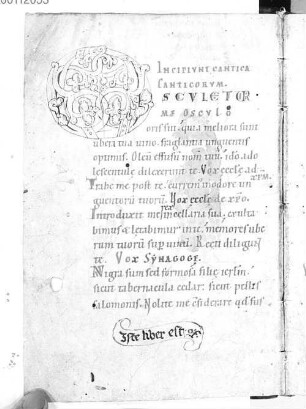 INCIPIUNT CANTICA
CANTICORUM.
OSCULETUR
ME OSCULO
oris sui. quia meliora sunt
ubera tua uino. fraglantia unguentis
optimis. Oleū effusū nomē tuū. ideo ado
lescentule dilexerunt te. Vox eccłę ad xp̄m.
Trahe me post te. currem' in odore un
guentorū tuorū. Vox eccłę de xp̄o.
Introduxit me rex in cellaria sua. exulta
bimus & lętabimur in te. memores ube
rum tuorū sup uinū. Recti diligunt
te. VOX SYNAGOGE.
Nigra sum sed formosa filię ierłm.
sicut tabernacula cedar. sicut pelles
salomonis. Nolite me c̄siderare qd fus
Iste liber est